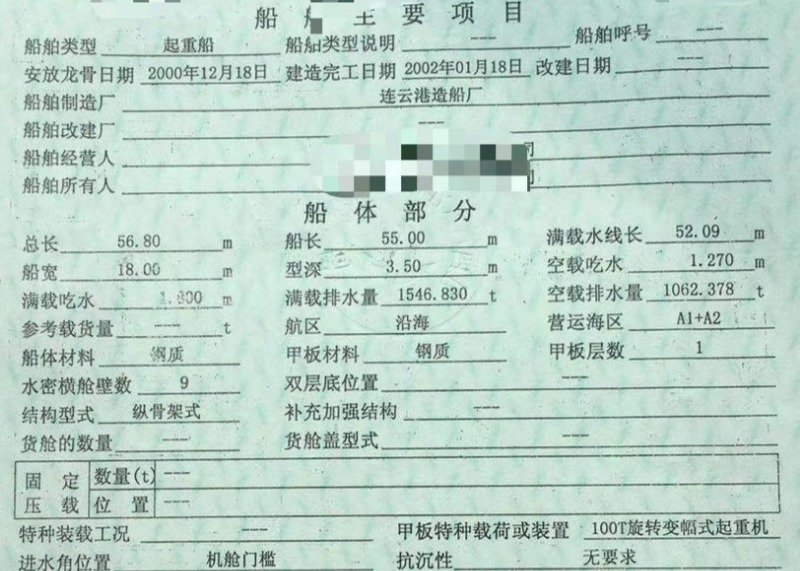 船 舶 主 要 项 目
船舶类型 起重船 船舶类型说明 --- 船舶呼号 ---
安放龙骨日期 2000年12月18日 建造完工日期 2002年01月18日 改建日期 ---
船舶制造厂 连云港造船厂
船舶改建厂 ---
船舶经营人
船舶所有人
船 体 部 分
总长 56.80 m 船长 55.00 m 满载水线长 52.09 m
船宽 18.00 m 型深 3.50 m 空载吃水 1.270 m
满载吃水 1.800 m 满载排水量 1546.830 t 空载排水量 1062.378 t
参考载货量 --- t 航区 沿海 营运海区 A1+A2
船体材料 钢质 甲板材料 钢质 甲板层数 1
水密横舱壁数 9 双层底位置 ---
结构型式 纵骨架式 补充加强结构 ---
货舱的数量 --- 货舱盖型式 ---
固 定 数量(t) ---
压 载 位 置 ---
特种装载工况 --- 甲板特种载荷或装置 100T旋转变幅式起重机
进水角位置 机舱门槛 抗沉性 无要求